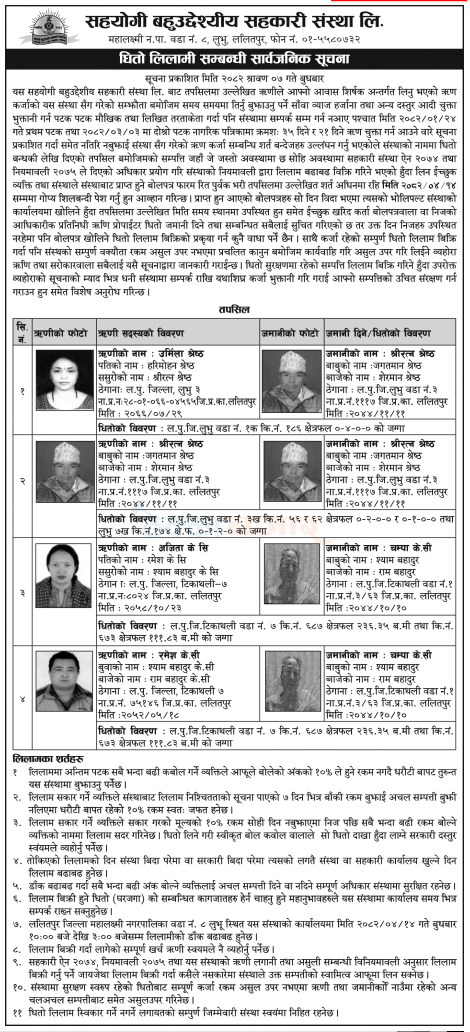 सहयोगी बहुउद्देश्यीय सहकारी संस्था लि.
महालक्ष्मी न.पा. वडा नं. ८, लुभु, ललितपुर, फोन नं. ०१-५५८०७३२
धितो लिलामी सम्बन्धी सार्वजनिक सूचना
सूचना प्रकाशित मिति २०८२ श्रावण ०७ गते बुधबार
यस सहयोगी बहुउद्देश्यीय सहकारी संस्था लि. बाट तपसिलमा उल्लेखित ऋणीले आफ्नो आवास शिर्षक अन्तर्गत लिनु भएको ऋण
कर्जाको यस संस्था सँग गरेको सम्झौता बमोजिम समय समयमा तिर्नु बुझाउनु पर्ने साँवा व्याज हर्जाना तथा अन्य दस्तुर आदी चुक्ता
भुक्तानी गर्न पटक पटक मौखिक तथा लिखित तरताकेता गर्दा पनि संस्थामा सम्पर्क सम्म गर्न नआए पश्चात मिति २०८२/०१/२४
गते प्रथम पटक तथा २०८२/०३/०३ मा दोश्रो पटक नागरिक पत्रिकामा क्रमशः ३५ दिन र २१ दिने ऋण चुक्ता गर्न आउने वारे सूचना
प्रकाशित गर्दा समेत नतिरि नबुझाई संस्था सँग गरेको ऋण कर्जा सम्बन्धि शर्त बन्देजहरु उल्लंघन गर्नु भएकोले संस्थाको नाममा धितो
बन्धकी लेखि दिएको तपसिल बमोजिमको सम्पत्ति जहाँ जे जस्तो अवस्थामा छ सोहि अवस्थामा सहकारी संस्था ऐन २०७४ तथा
नियमावली २०७५ ले दिएको अधिकार प्रयोग गरि संस्थाको नियमावली द्वारा लिलाम बढाबढ विक्रि गरेको हुदा लिन ईच्छुक
व्यक्ति तथा संस्थाले संस्थाबाट प्राप्त हुने बोलपत्र फारम रित पुर्वक भरी तपसिलमा उल्लेखित शर्त अधिनमा रहि मिति २०८२/०४/१४
सम्ममा गोप्य शिलबन्दी पेश गर्नु हुन आव्हान गरिन्छ। प्राप्त हुन आएको बोलपत्रहरु सो दिन विदा भएमा त्यसको भोलिपल्ट संस्थाको
कार्यालयमा खोलिने हुँदा तपसिलमा उल्लेखित मिति समय स्थानमा उपस्थित हुन समेत ईच्छुक खरिद कर्ता बोलपत्रवाला वा निजको
आधिकारीक प्रतिनिधी ऋणि प्रोपाईटर धितो जमानी दिने तथा सम्बन्धित सबैलाई सुचित गरिएको छ तर उक्त दिन निजहरु उपस्थित
नरहेमा पनि बोलपत्र खोलिने धितो लिलाम बिक्रिको प्रकृया गर्न कुनै वाधा पर्ने छैन। साथै कर्जा रहेको सम्पुर्ण धितो लिलाम बिक्रि
गर्दा पनि संस्थाको सम्पुर्ण वक्यौता रकम असुल उपर नभएमा प्रचलित कानुन बमोजिम कार्यवाहि गरि असुल उपर गरि लिईने व्यहोरा
ऋणि तथा सरोकारवाला सबैलाई यसै सूचनाद्वारा जानकारी गराईन्छ। धितो सुरक्षणमा रहेको सम्पत्ति लिलाम बिक्रि गरिने हुँदा उपरोक्त
व्यहोराको सूचनाको म्याद भित्र धनी संस्थामा सम्पर्क राखि यथाशिघ्र कर्जा भुक्तानी गरि गराई आफ्नो सम्पत्तिको उचित संरक्षण गर्न
गराउन हुन समेत विशेष अनुरोध गरिन्छ।
तपसिल
सि. नं. ऋणीको फोटो ऋणी सदस्यको विवरण जमानीको फोटो जमानी दिने/धितोको विवरण
१
ऋणीको नाम : उर्मिला श्रेष्ठ
पतिको नाम : हरिमोहन श्रेष्ठ
ससुरोको नाम : श्रीरत्न श्रेष्ठ
ठेगाना: ल.पु. जिल्ला, लुभु ३
ना.प्र.नः२८-०१-०६६-०४५६५जि.प्र.का. ललितपुर
मिति : २०६६/०७/२९
जमानीको नाम : श्रीरत्न श्रेष्ठ
बाबुको नाम :जगतमान श्रेष्ठ
बाजेको नाम : शेरमान श्रेष्ठ
ठेगाना : ल.पु.जि.लुभु वडा नं.३
ना.प्र.नं.१११७ जि.प्र.का. ललितपुर
मिति :२०४४/११/११
धितोको विवरण : ल.पु.जि.लुभु वडा नं. १क कि.नं. १८६ क्षेत्रफल ०-४-०-० को जग्गा
२
ऋणीको नाम : श्रीरत्न श्रेष्ठ
बाबुको नाम :जगतमान श्रेष्ठ
बाजेको नाम : शेरमान श्रेष्ठ
ठेगाना : ल.पु.जि.लुभु वडा नं.३
ना.प्र.नं.१११७ जि.प्र.का. ललितपुर
मिति :२०४४/११/११
जमानीको नाम : श्रीरत्न श्रेष्ठ
बाबुको नाम :जगतमान श्रेष्ठ
बाजेको नाम : शेरमान श्रेष्ठ
ठेगाना : ल.पु.जि.लुभु वडा नं.३
ना.प्र.नं.१११७ जि.प्र.का. ललितपुर
मिति :२०४४/११/११
धितोको विवरण : ल.पु.जि.लुभु वडा नं. ३ख कि.नं. ५६ र ६२ क्षेत्रफल ०-२-०-० र ०-१-०-० तथा
लुभु ७ख कि.नं.१७४ क्षे.फ. ०-१-२-० को जग्गा
३
ऋणीको नाम : अजिता के सि
पतिको नाम : रमेश के सि
ससुरोको नाम : श्याम बहादुर के सि
ठेगाना ः ल.पु. जिल्ला, टिकाथली-७
ना.प्र.नः८०२४ जि.प्र.का. ललितपुर
मिति : २०५८/१०/२३
जमानीको नाम : चम्पा के.सी
बाबुको नाम : श्याम बहादुर के.सी
बाजेको नाम : राम बहादुर के.सी
ठेगाना : ल.पु.जि.टिकाथली वडा नं.१
ना.प्र.नं.३/६३ जि.प्र.का. ललितपुर
मिति :२०४४/१०/१०
धितोको विवरण : ल.पु.जि.टिकाथली वडा नं. ७ कि.नं. ६८७ क्षेत्रफल २३६.३५ ब.मी तथा कि.नं.
६७३ क्षेत्रफल १११.८३ ब.मी को जग्गा
४
ऋणीको नाम : रमेश के.सी
बुवाको नाम : श्याम बहादुर के.सी
बाजेको नाम : राम बहादुर के.सी
ठेगाना : ल.पु. जिल्ला, टिकाथली ७
ना.प्र.नं. ७५१४६ जि.प्र.का. ललितपुर
मिति :२०५२/०५/१८
जमानीको नाम : चम्पा के.सी
बाबुको नाम : श्याम बहादुर के.सी
बाजेको नाम : राम बहादुर के.सी
ठेगाना : ल.पु.जि.टिकाथली वडा नं.१
ना.प्र.नं.३/६३ जि.प्र.का. ललितपुर
मिति :२०४४/१०/१०
धितोको विवरण : ल.पु.जि.टिकाथली वडा नं. ७ कि.नं. ६८७ क्षेत्रफल २३६.३५ ब.मी तथा कि.नं.
६७३ क्षेत्रफल १११.८३ ब.मी को जग्गा
लिलामका शर्तहरु
१ लिलाममा अन्तिम पटक सबै भन्दा बढी कबोल गर्ने व्यक्तिले आफूले बोलेको अंकको १०% ले हुने रकम नगदै धरौटी बापत तुरुन्त
यस संस्थामा बुझाउनु पर्नेछ।
२. लिलाम सकार गर्ने व्यक्तिले संस्थाबाट लिलाम निश्चितताको सूचना पाएको ७ दिन भित्र बाँकी रकम बुझाई अचल सम्पत्ती बुझी
नलिएमा धरौटी बापत रहेको १०% रकम स्वतः जफत हनेछ।
३. लिलाम सकार गर्ने व्यक्तिले सकार गरको मूल्यको १०% रकम सोही दिन नबुझाएमा निज पछि सबै भन्दा बढी रकम बोल्ने
व्यक्तिको नाममा लिलाम सदर गरिनेछ। धितो लिने गरी स्वीकृत बोल कवोल वालाले सो धितो दाखा हुँदा लाग्ने सरकारी दस्तुर
स्वंयमले व्यहोर्नु पर्नेछ।
४. तोकिएको लिलामको दिन संस्था बिदा परेमा वा सरकारी बिदा परेमा त्यसको लगत्तै संस्था वा सहकारी कार्यालय खुल्ने दिन
लिलाम बढाबढ हुनेछ।
५. डाँक बढाबढ गर्दा सबै भन्दा बढी अंक बोल्ने व्यक्तिलाई अचल सम्पत्ती दिने वा नदिने सम्पूर्ण अधिकार संस्थामा सुरक्षित रहनेछ।
६. लिलाम बिक्री हुने धितो (घरजग्गा) को सम्बन्धित कागजातहरु हेर्न चाहनु हुने महानुभावहरुले यस संस्थामा कार्यालय समय भित्र
सम्पर्क राख्न सक्नुहुनेछ।
७. ललितपुर जिल्ला महालक्ष्मी नगरपालिका वडा नं. ८ लुभू स्थित यस संस्थाको कार्यालयमा मिति २०८२/०४/१४ गते बुधबार
१०:०० बजे देखि ३:०० बजेसम्म लिलामीको डाँक बढाबढ हुनेछ।
८. लिलाम बिक्री गर्दा लागेको सम्पूर्ण खर्च ऋणी स्वयमले नै व्यहोर्नु पर्नेछ।
९. सहकारी ऐन २०७४, नियमावली २०७५ तथा यस संस्थाको ऋणी लगानी तथा असुली सम्बन्धी विनियमावली अनुसार लिलाम
बिक्री गर्नु पर्ने जायजेथा लिलाम बिक्री गर्दा कसैले नसकारेमा संस्थाले उक्त सम्पतीको स्वामित्व आफूमा लिन सक्नेछ।
१०. संस्थामा सुरक्षण स्वरुप रहेको धितोबाट सम्पूर्ण कर्जा रकम असुल उपर नभएमा ऋणी तथा जमानीकर्ताको नाउँमा रहेको अन्य
चलअचल सम्पत्तीबाट समेत असुलउपर गरिनेछ।
११ धितो लिलाम स्विकार गर्ने नगर्ने लगायतको सम्पुर्ण जिम्मेवारी संस्था स्वयंमा निहित रहनेछ।